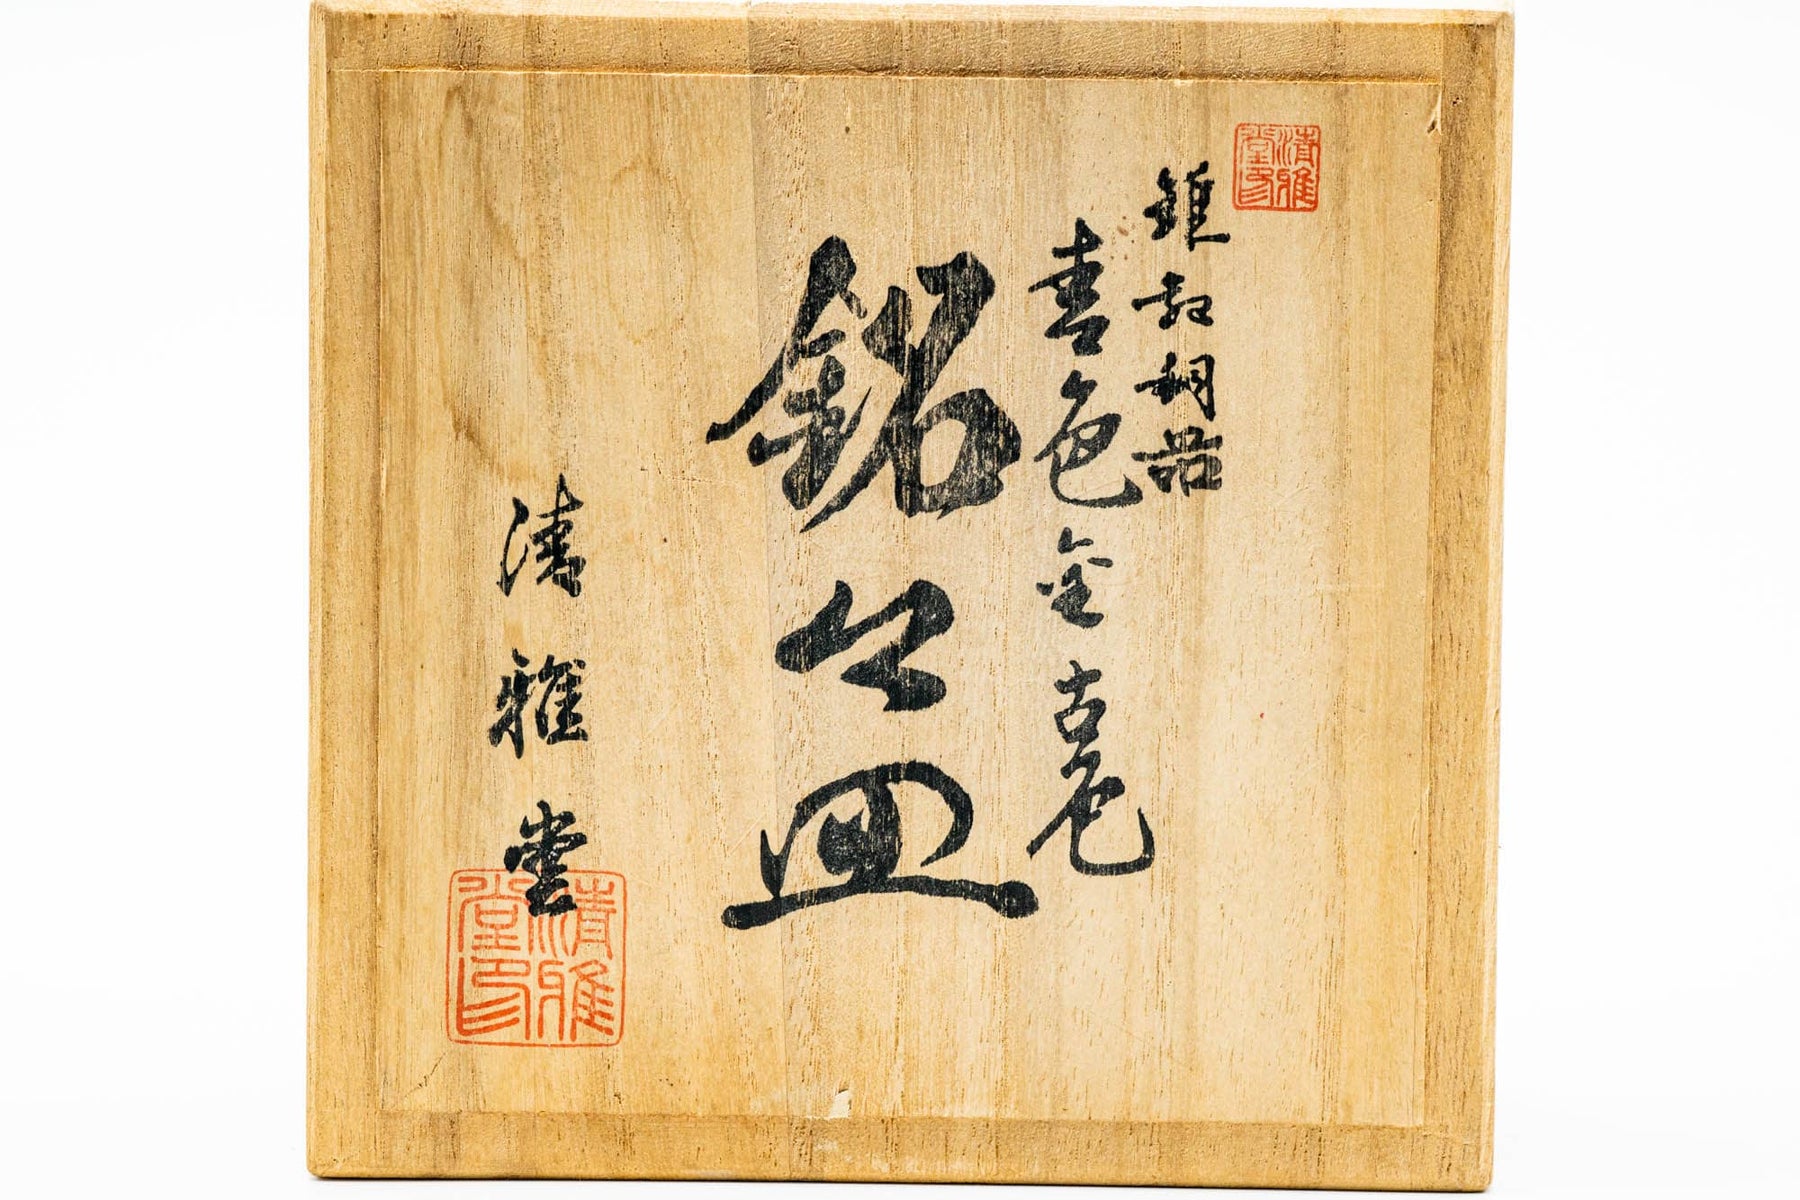 清雅堂印
鎚起銅器
青色金古色
銘々皿
清雅堂
清雅堂印